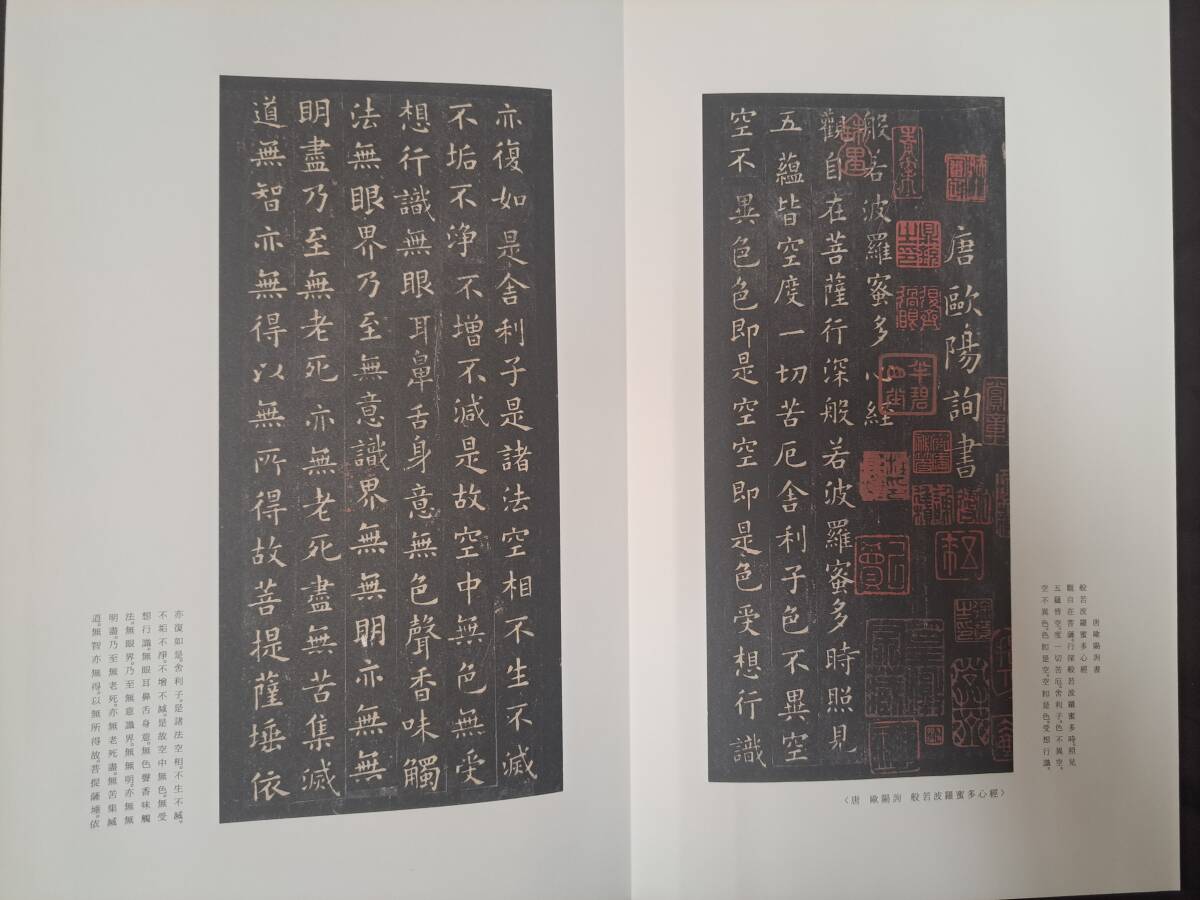 唐歐陽詢書
般若波羅蜜多心経
觀自在菩薩行深般若波羅蜜多時照見
五蘊皆空度一切苦厄舍利子色不異空
空不異色色即是空空即是色受想行識
唐歐陽詢書
般若波羅蜜多心經
觀自在菩薩。行深般若波羅蜜多時。照見
五蘊皆空。度一切苦厄。舍利子。色不異空。
空不異色。色卽是空。空卽是色。受想行識。
〈唐 歐陽詢 般若波羅蜜多心經〉
亦復如是舍利子是諸法空相不生不滅
不垢不浄不增不減是故空中無色無受
想行識無眼耳鼻舌身意無色聲香味觸
法無眼界乃至無意識界無無明亦無無
明盡乃至無老死亦無老死盡無苦集滅
道無智亦無得以無所得故菩提薩埵依
亦復如是。舍利子。是諸法空相。不生不滅。
不垢不淨。不增不減。是故空中無色。無受
想行識。無眼耳鼻舌身意。無色聲香味觸
法。無眼界。乃至無意識界。無無明。亦無無
明盡。乃至無老死。亦無老死盡。無苦集滅
道。無智亦無得。以無所得故。菩提薩埵。依